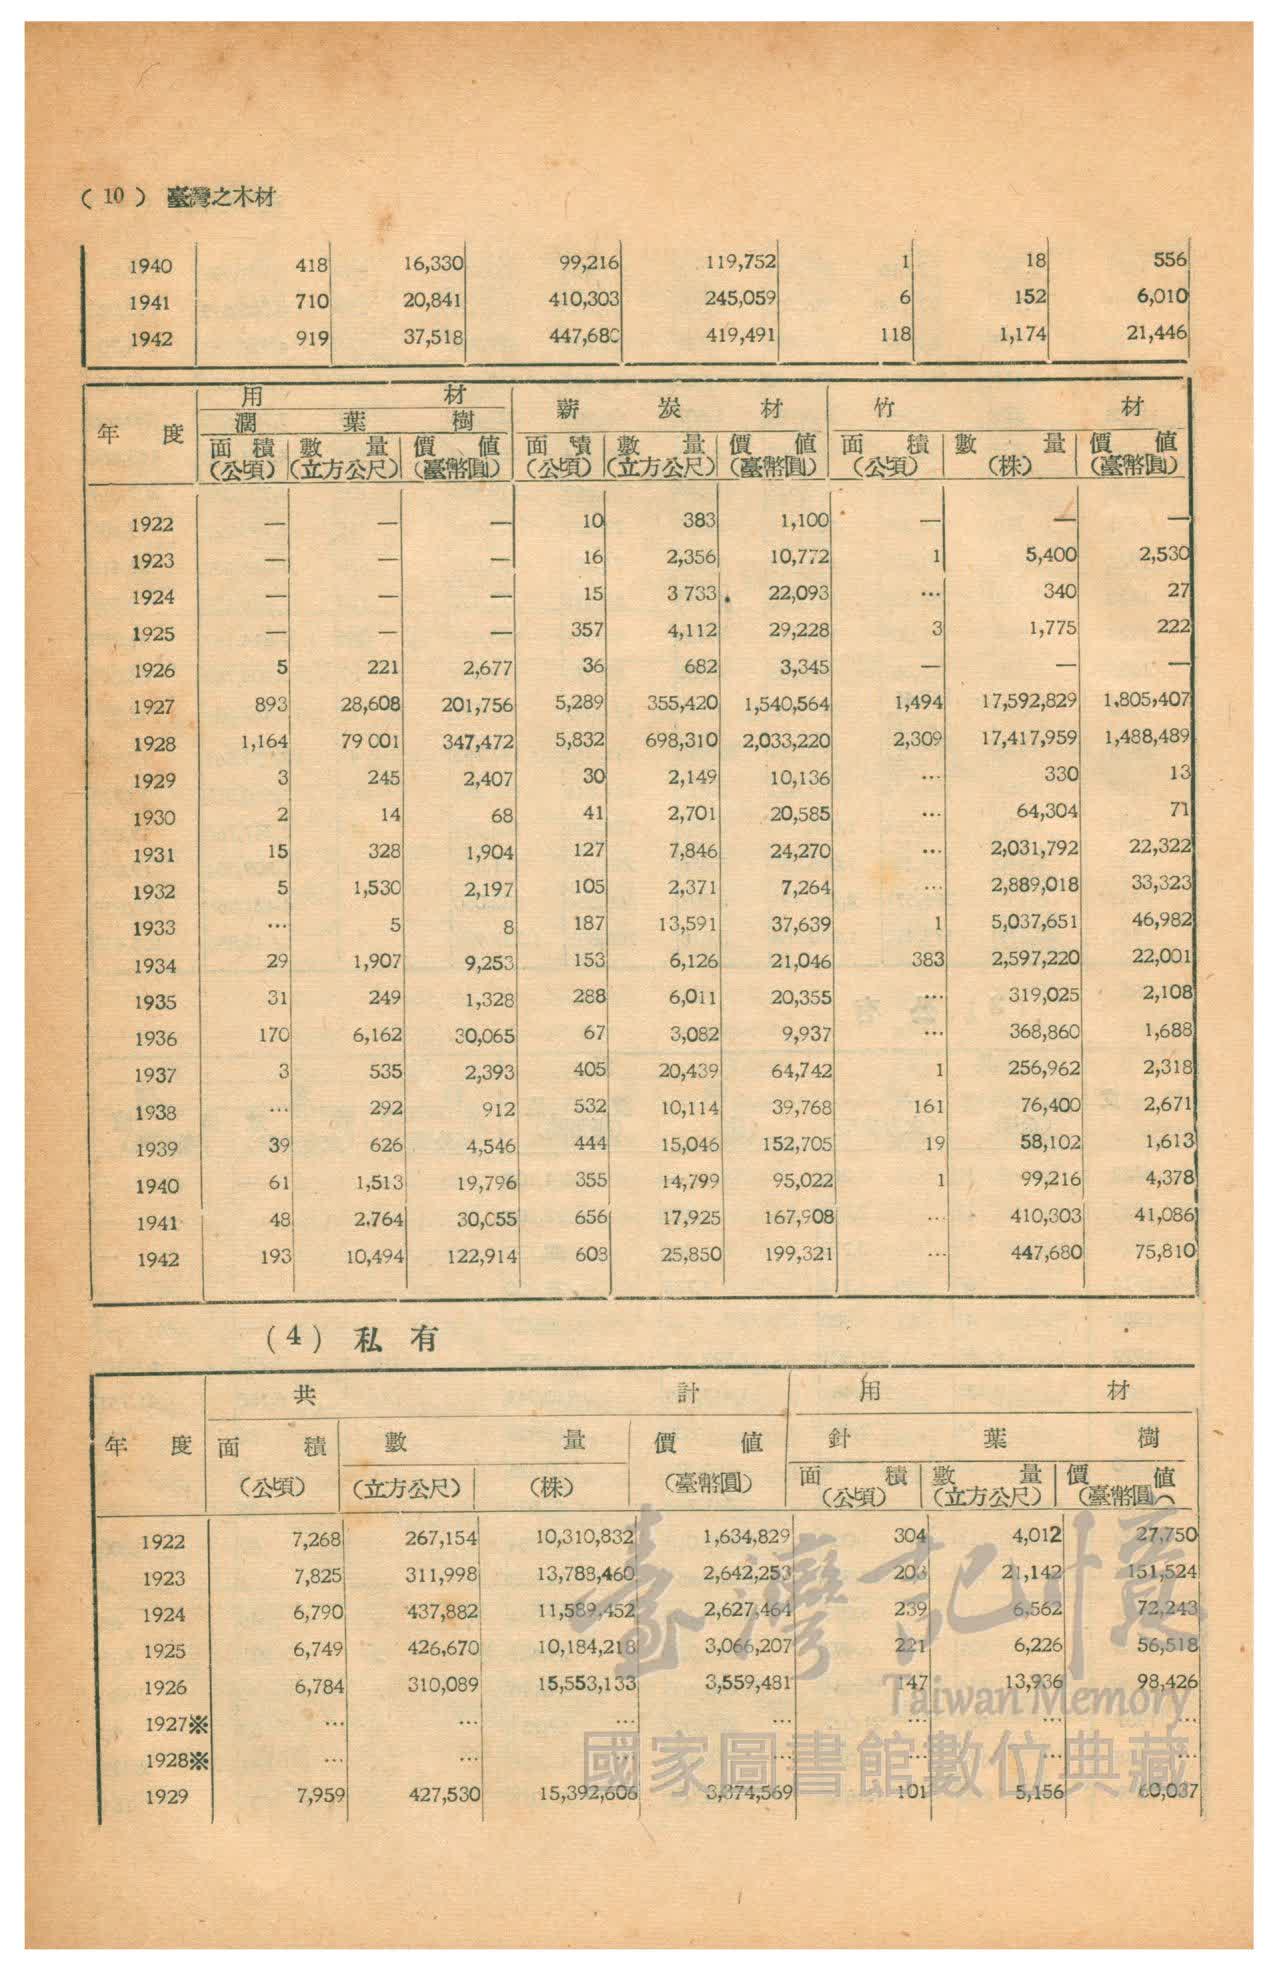 (10) 臺灣之木材
1940 418 16,330 99,216 119,752 1 18 556
1941 710 20,841 410,303 245,059 6 152 6,010
1942 919 37,518 447,680 419,491 118 1,174 21,446
年 度 用 材 薪 炭 材 竹 材
濶 葉 樹
面 積 數 量 價 值 面 積 數 量 價 值 面 積 數 量 價 值
(公頃) (立方公尺) (臺幣圓) (公頃) (立方公尺) (臺幣圓) (公頃) (株) (臺幣圓)
1922 — — — 10 383 1,100 — — —
1923 — — — 16 2,356 10,772 1 5,400 2,530
1924 — — — 15 3 733 22,093 … 340 27
1925 — — — 357 4,112 29,228 3 1,775 222
1926 5 221 2,677 36 682 3,345 — — —
1927 893 28,608 201,756 5,289 355,420 1,540,564 1,494 17,592,829 1,805,407
1928 1,164 79 001 347,472 5,832 698,310 2,033,220 2,309 17,417,959 1,488,489
1929 3 245 2,407 30 2,149 10,136 … 330 13
1930 2 14 68 41 2,701 20,585 … 64,304 71
1931 15 328 1,904 127 7,846 24,270 … 2,031,792 22,322
1932 5 1,530 2,197 105 2,371 7,264 … 2,889,018 33,323
1933 … 5 8 187 13,591 37,639 1 5,037,651 46,982
1934 29 1,907 9,253 153 6,126 21,046 383 2,597,220 22,001
1935 31 249 1,328 288 6,011 20,355 … 319,025 2,108
1936 170 6,162 30,065 67 3,082 9,937 … 368,860 1,688
1937 3 535 2,393 405 20,439 64,742 1 256,962 2,318
1938 … 292 912 532 10,114 39,768 161 76,400 2,671
1939 39 626 4,546 444 15,046 152,705 19 58,102 1,613
1940 61 1,513 19,796 355 14,799 95,022 1 99,216 4,378
1941 48 2,764 30,055 656 17,925 167,908 … 410,303 41,086
1942 193 10,494 122,914 603 25,850 199,321 … 447,680 75,810
(4) 私 有
年 度 共 計 用 材
面 積 數 量 價 值 針 葉 樹
(公頃) (立方公尺) (株) (臺幣圓) 面 積 數 量 價 值
(公頃) (立方公尺) (臺幣圓)
1922 7,268 267,154 10,310,832 1,634,829 304 4,012 27,750
1923 7,825 311,998 13,788,460 2,642,253 21,142 151,524
1924 6,790 437,882 11,589,452 2,627,464 239 6,562 72,243
1925 6,749 426,670 10,184,218 3,066,207 221 6,226 56,518
1926 6,784 310,089 15,553,133 3,559,481 147 13,936 98,426
1927※ … … … … … … …
1928※ … … … … … … …
1929 7,959 427,530 15,392,606 3,374,569 101 5,156 60,037
臺灣記憶
Taiwan Memory
國家圖書館數位典藏